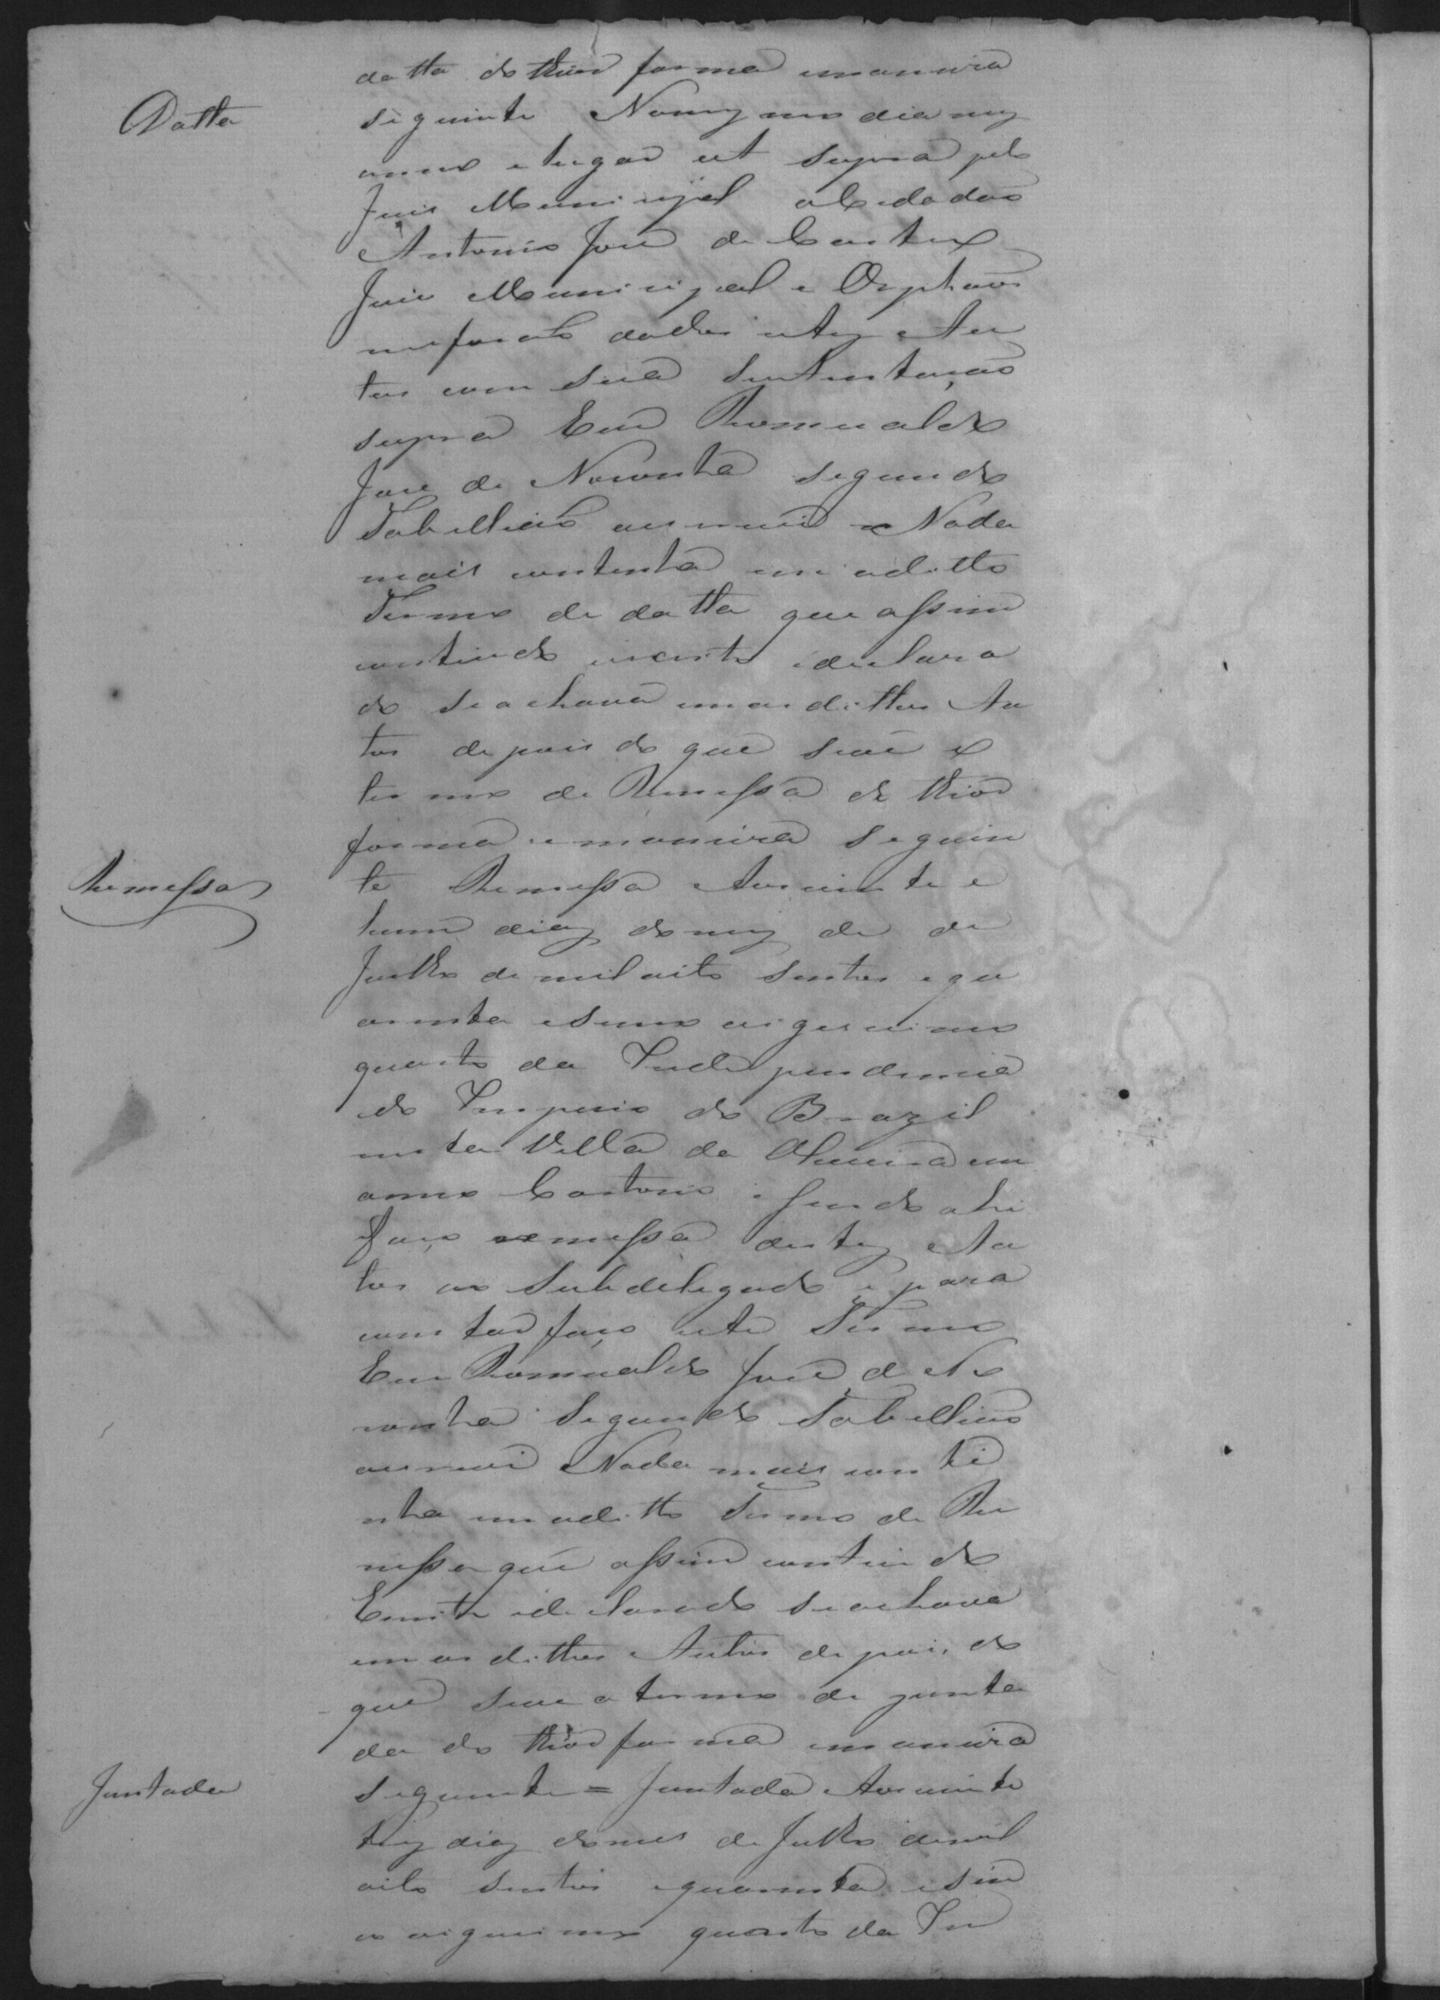 datta do thior forma emaneira
Datta
seguinte Nomez mo dia mez
anno e lugar ut supra pelo
Juis Municipal o Cidadão
Antonio José de Castro
Juis Municipal e Orphaos
me forão dados estes Au
tos com sua sustentação
supra Eu Romualdo
José de Noronha segundo
Tabellião escrevi = Nada
mais continha em o ditto
Termo de datta que assim
contiudo escrito e declara
do se achava em os dittos Au
tos depois do que se ve o
termo de Remessa do thior
forma e maneira seguin
te Remessa Aos vinte e
Remessa
hum dias do mez de de
Julho de mil oito sentos e qu
arenta e sinco vigecimo
quarto da Independencia
do Imperio do Brazil
nesta Villa da
em meo Cartorio e sendo ahi
faço remessa destes Au
tos ao Subdelegado e para
constar faço este Termo
Eu Romualdo José de No
ronha segundo Tabellião
escrevi Nada mais conti
nha em o ditto Termo de Re
messa que assim contiudo
Escrito e declarado se achava
em os dittos Autos depois do
que se ve o termo de junta
da do thior forma emaneira
seguinte = Juntada Aos vinte
Juntada
tres dias do mes de Julho de mil
oito sentos e quarenta e sin
co vigecimo quarto da In